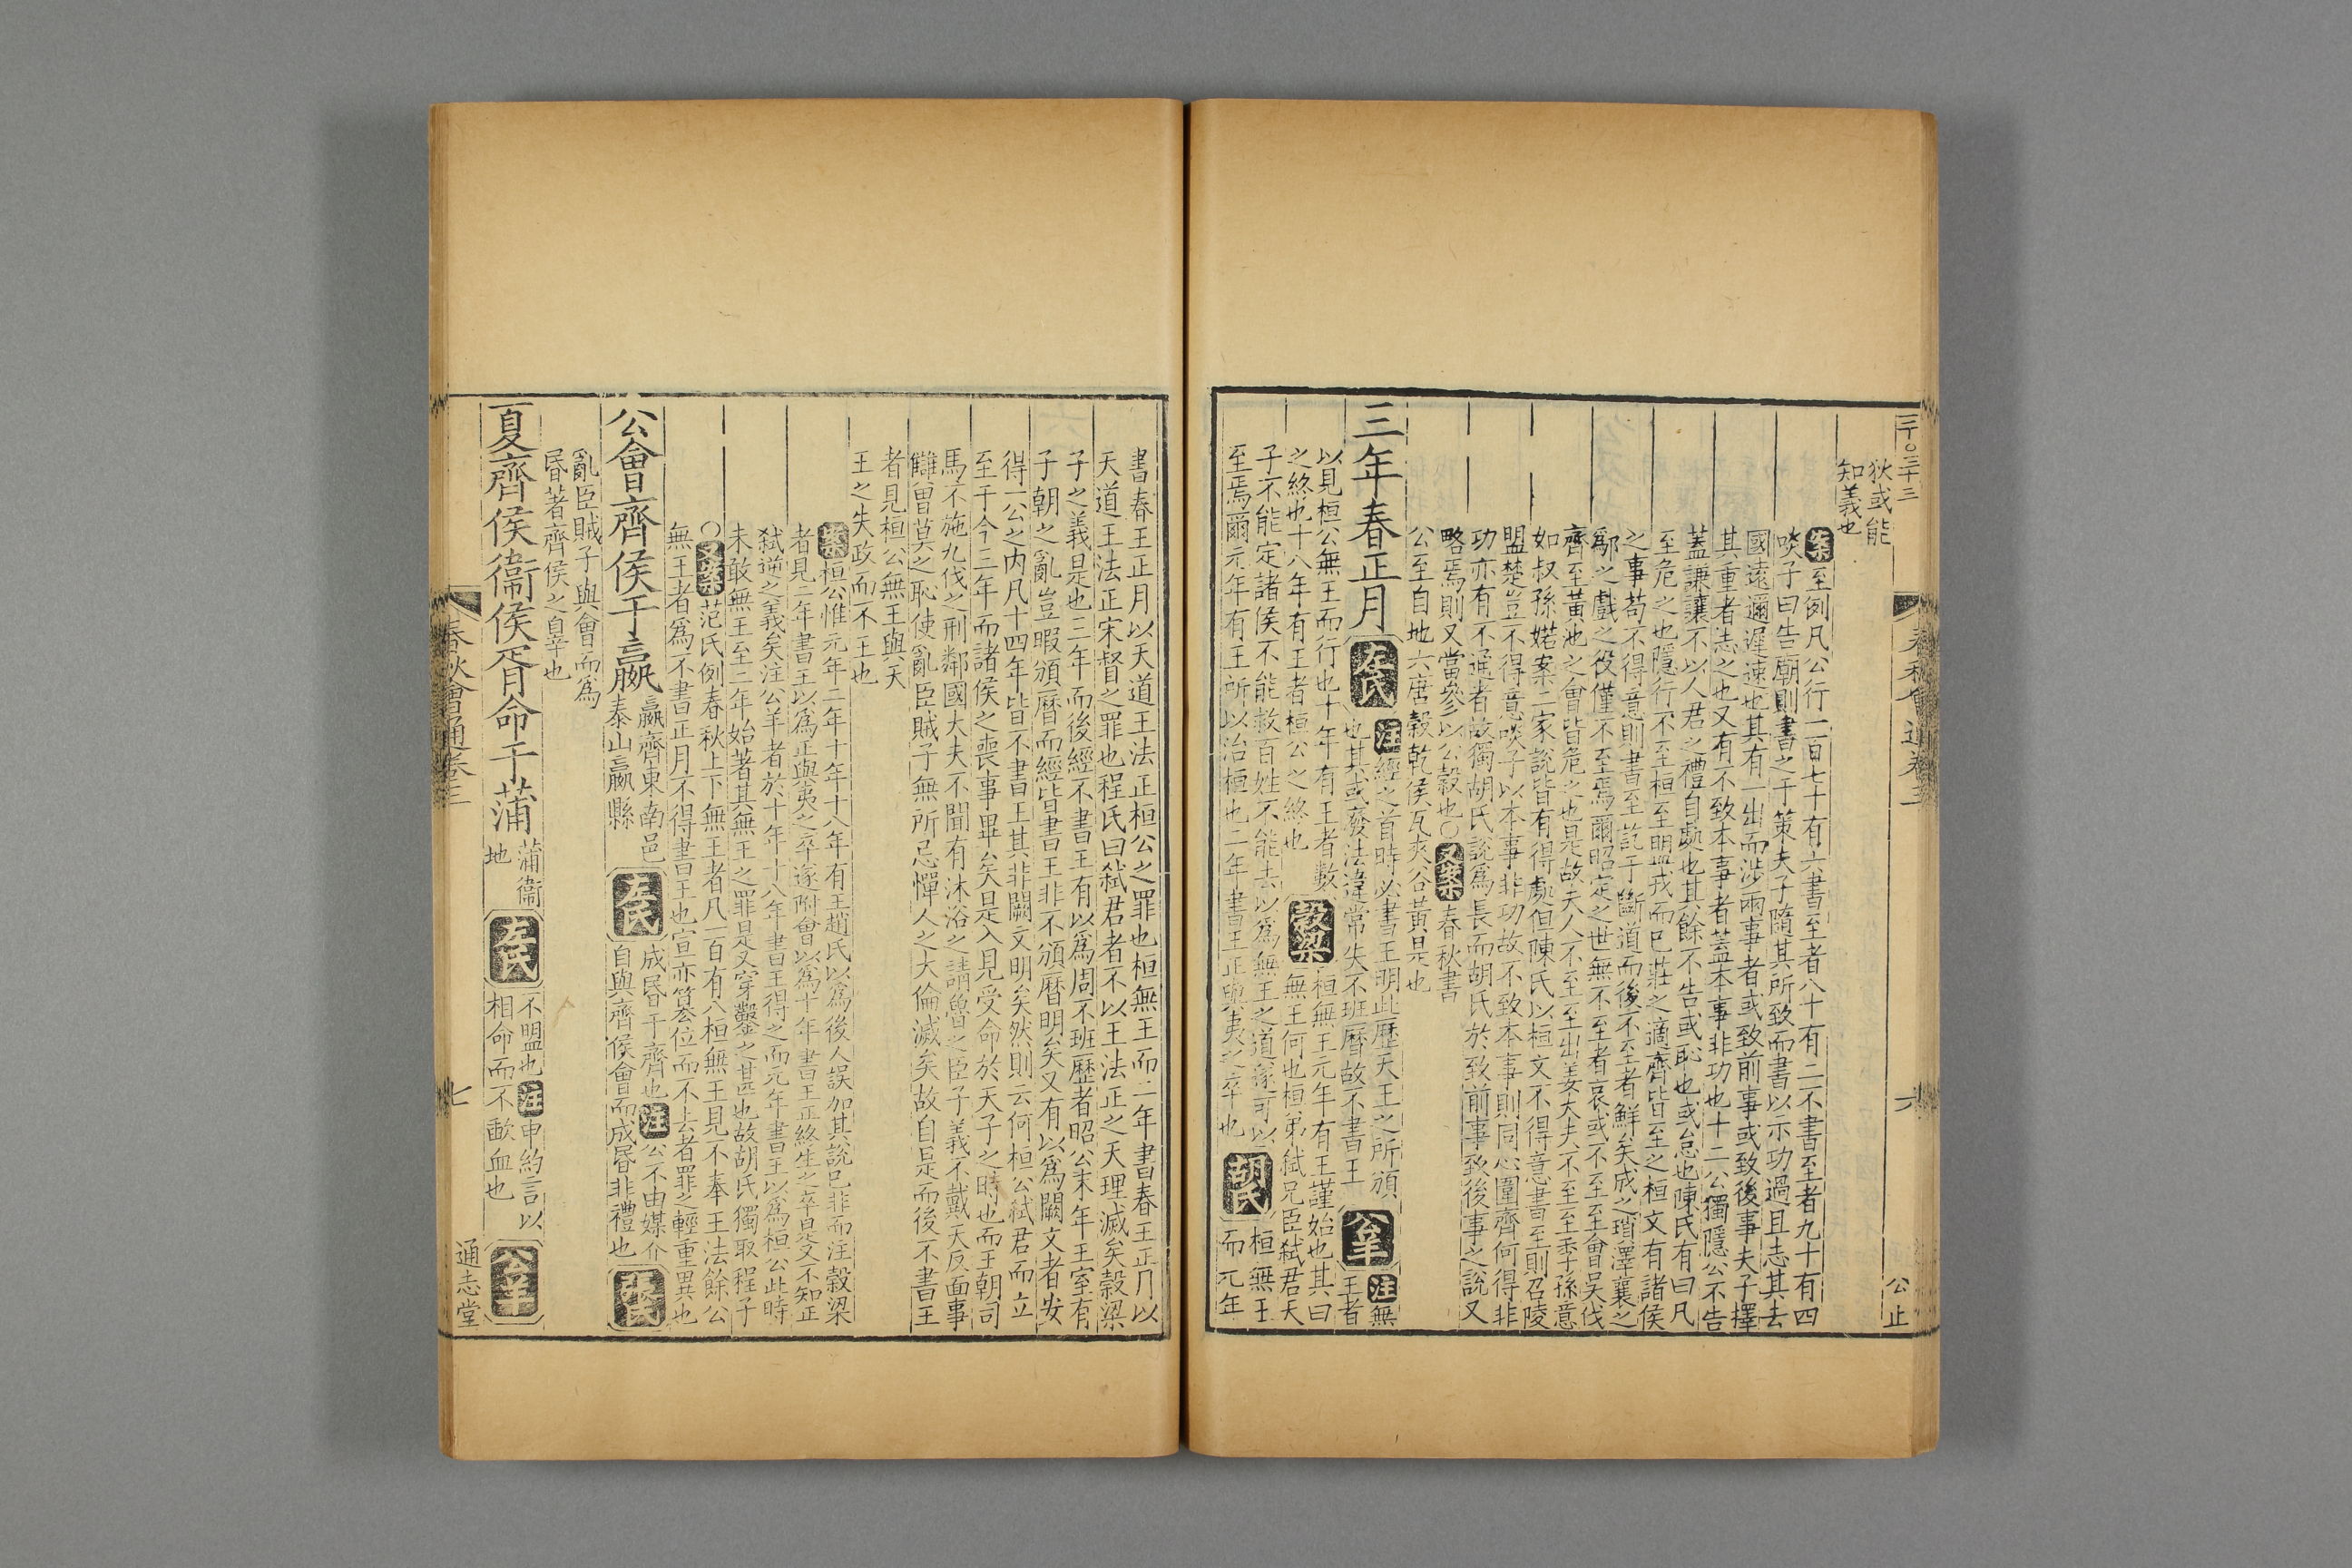 三千〇三十三
春秋會通卷三
六
公止
狄或能
知義也
案至例凡公行一百七十有六書至者八十有二不書至者九十有四
啖子曰告廟則書之于策夫子隨其所致而書以示功過且志其去
國遠邇遲速也其有一出而涉兩事者或致前事或致後事夫子擇
其重者志之也又有不致本事者蓋本事非功也十二公獨隱公不告
蓋謙讓不以人君之禮自處也其餘不告或恥也或怠也陳氏有曰凡
至危之也隱行不至桓至明盟戎而已莊之適齊皆至之桓文有諸侯
之事苟不得意則書至訖于斷道而後不至者鮮矣成之瑣澤襄之
鄬之戲之役僅不至焉爾昭定之世無不至者哀或不至至會吳伐
齊至黃池之會皆危之也是故夫人不至至出姜大夫不至至季孫意
如叔孫婼案二家說皆有得處但陳氏以桓文不得意書至則召陵
盟楚豈不得意啖子以本事非功故不致本事則同心圍齊何得非
功亦有不通者故獨胡氏說爲長而胡氏於致前事致後事之說又
略焉則又當參以公穀也〇又案春秋書
公至自地六唐穀乾侯瓦夾谷黃是也
三年春正月左氏注經之首時必書王明此曆天王之所頒
也其或廢法違常失不班曆故不書王公羊注無
王者
以見桓公無王而行也十年有王者數
之終也十八年有王者桓公之終也穀梁桓無王元年有王謹始也其曰
無王何也桓弟弒兄臣弒君天
子不能定諸侯不能救百姓不能去以爲無王之道遂可以
至焉爾元年有王所以治桓也二年書王正與夷之卒也胡氏桓無王
而元年
書春王正月以天道王法正桓公之罪也桓無王而二年書春王正月以
天道王法正宋督之罪也程氏曰弒君者不以王法正之天理滅矣穀梁
子之義是也三年而後經不書王有以爲周不班歷者昭公末年王室有
子朝之亂豈暇頒曆而經皆書王非不頒曆明矣又有以爲闕文者安
得一公之內凡十四年皆不書王其非闕文明矣然則云何桓公弒君而立
至于今三年而諸侯之喪事畢矣是入見受命於天子之時也而王朝司
馬不施九伐之刑鄰國大夫不聞有沐浴之請魯之臣子義不戴天反面事
讎曾莫之恥使亂臣賊子無所忌憚人之大倫滅矣故自是而後不書王
者見桓公無王與天
王之失政而不王也
案桓公惟元年二年十年十八年有王趙氏以爲後人誤加其說已非而注穀梁
者見二年書王以爲正與夷之卒遂附會以爲十年書王正終生之卒是又不知正
弒逆之義矣注公羊者於十年十八年書王得之而元年書王以爲桓公此時
未敢無王至二年始著其無王之罪是又穿鑿之甚也故胡氏獨取程子
〇又案范氏例春秋上下無王者凡一百有八桓無王見不奉王法餘公
無王者爲不書正月不得書王也宣亦簒位而不去者罪之輕重異也
公會齊侯于嬴嬴齊東南邑
泰山嬴縣左氏成昏于齊也注公不由媒介
自與齊侯會而成昏非禮也胡氏
亂臣賊子與會而爲
昏著齊侯之自卒也
夏齊侯衞侯胥命于蒲蒲衞
地左氏不盟也注申約言以
相命而不歃血也公羊
春秋會通卷三
七
通志堂